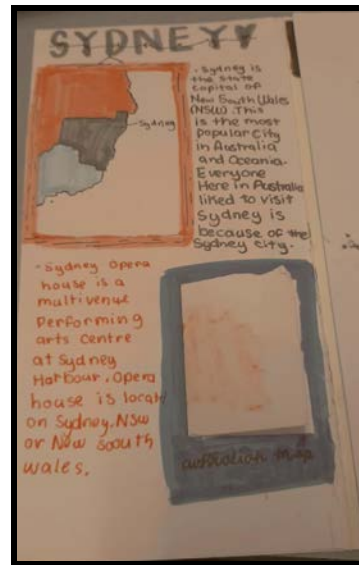 SYDNEY
Sydney
· Sydney is
the state
capital of
New South Wales
(NSW). This
is the most
popular city
in Australia
and Oceania.
Everyone
Here in Australia
liked to visit
Sydney is
because of the
Sydney city.
· Sydney Opera
house is a
multivenue
Performing
arts centre
at Sydney
Harbour. Opera
house is locat
on Sydney, NSW
or New South
Wales.
australian map